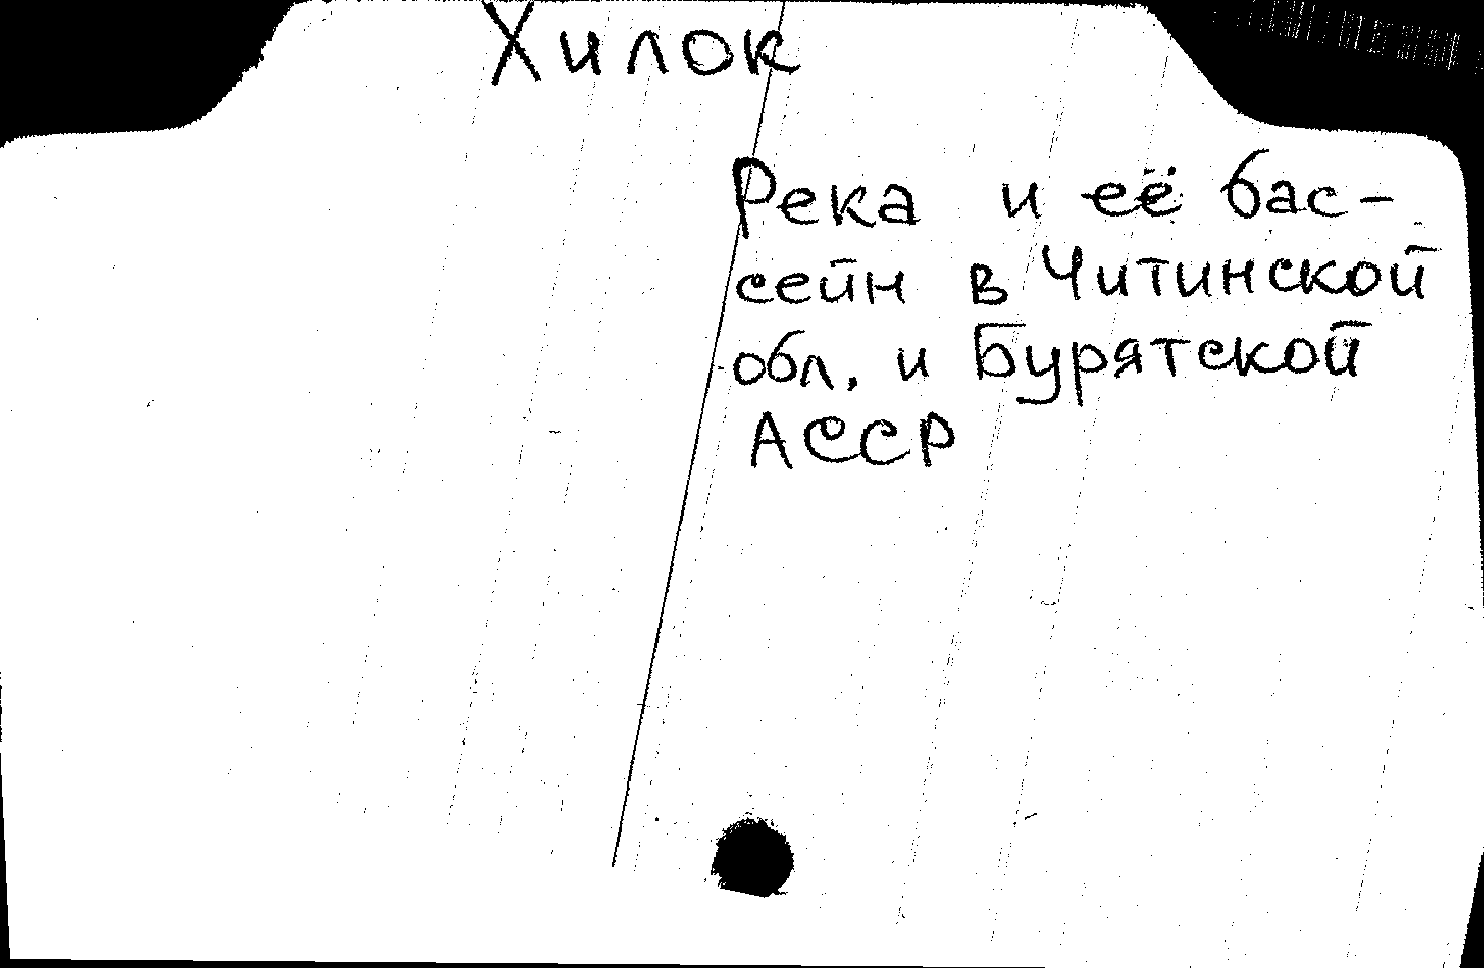 Хилок
Река и её бас-
сейн в Читинской
обл. и Бурятской
АССР